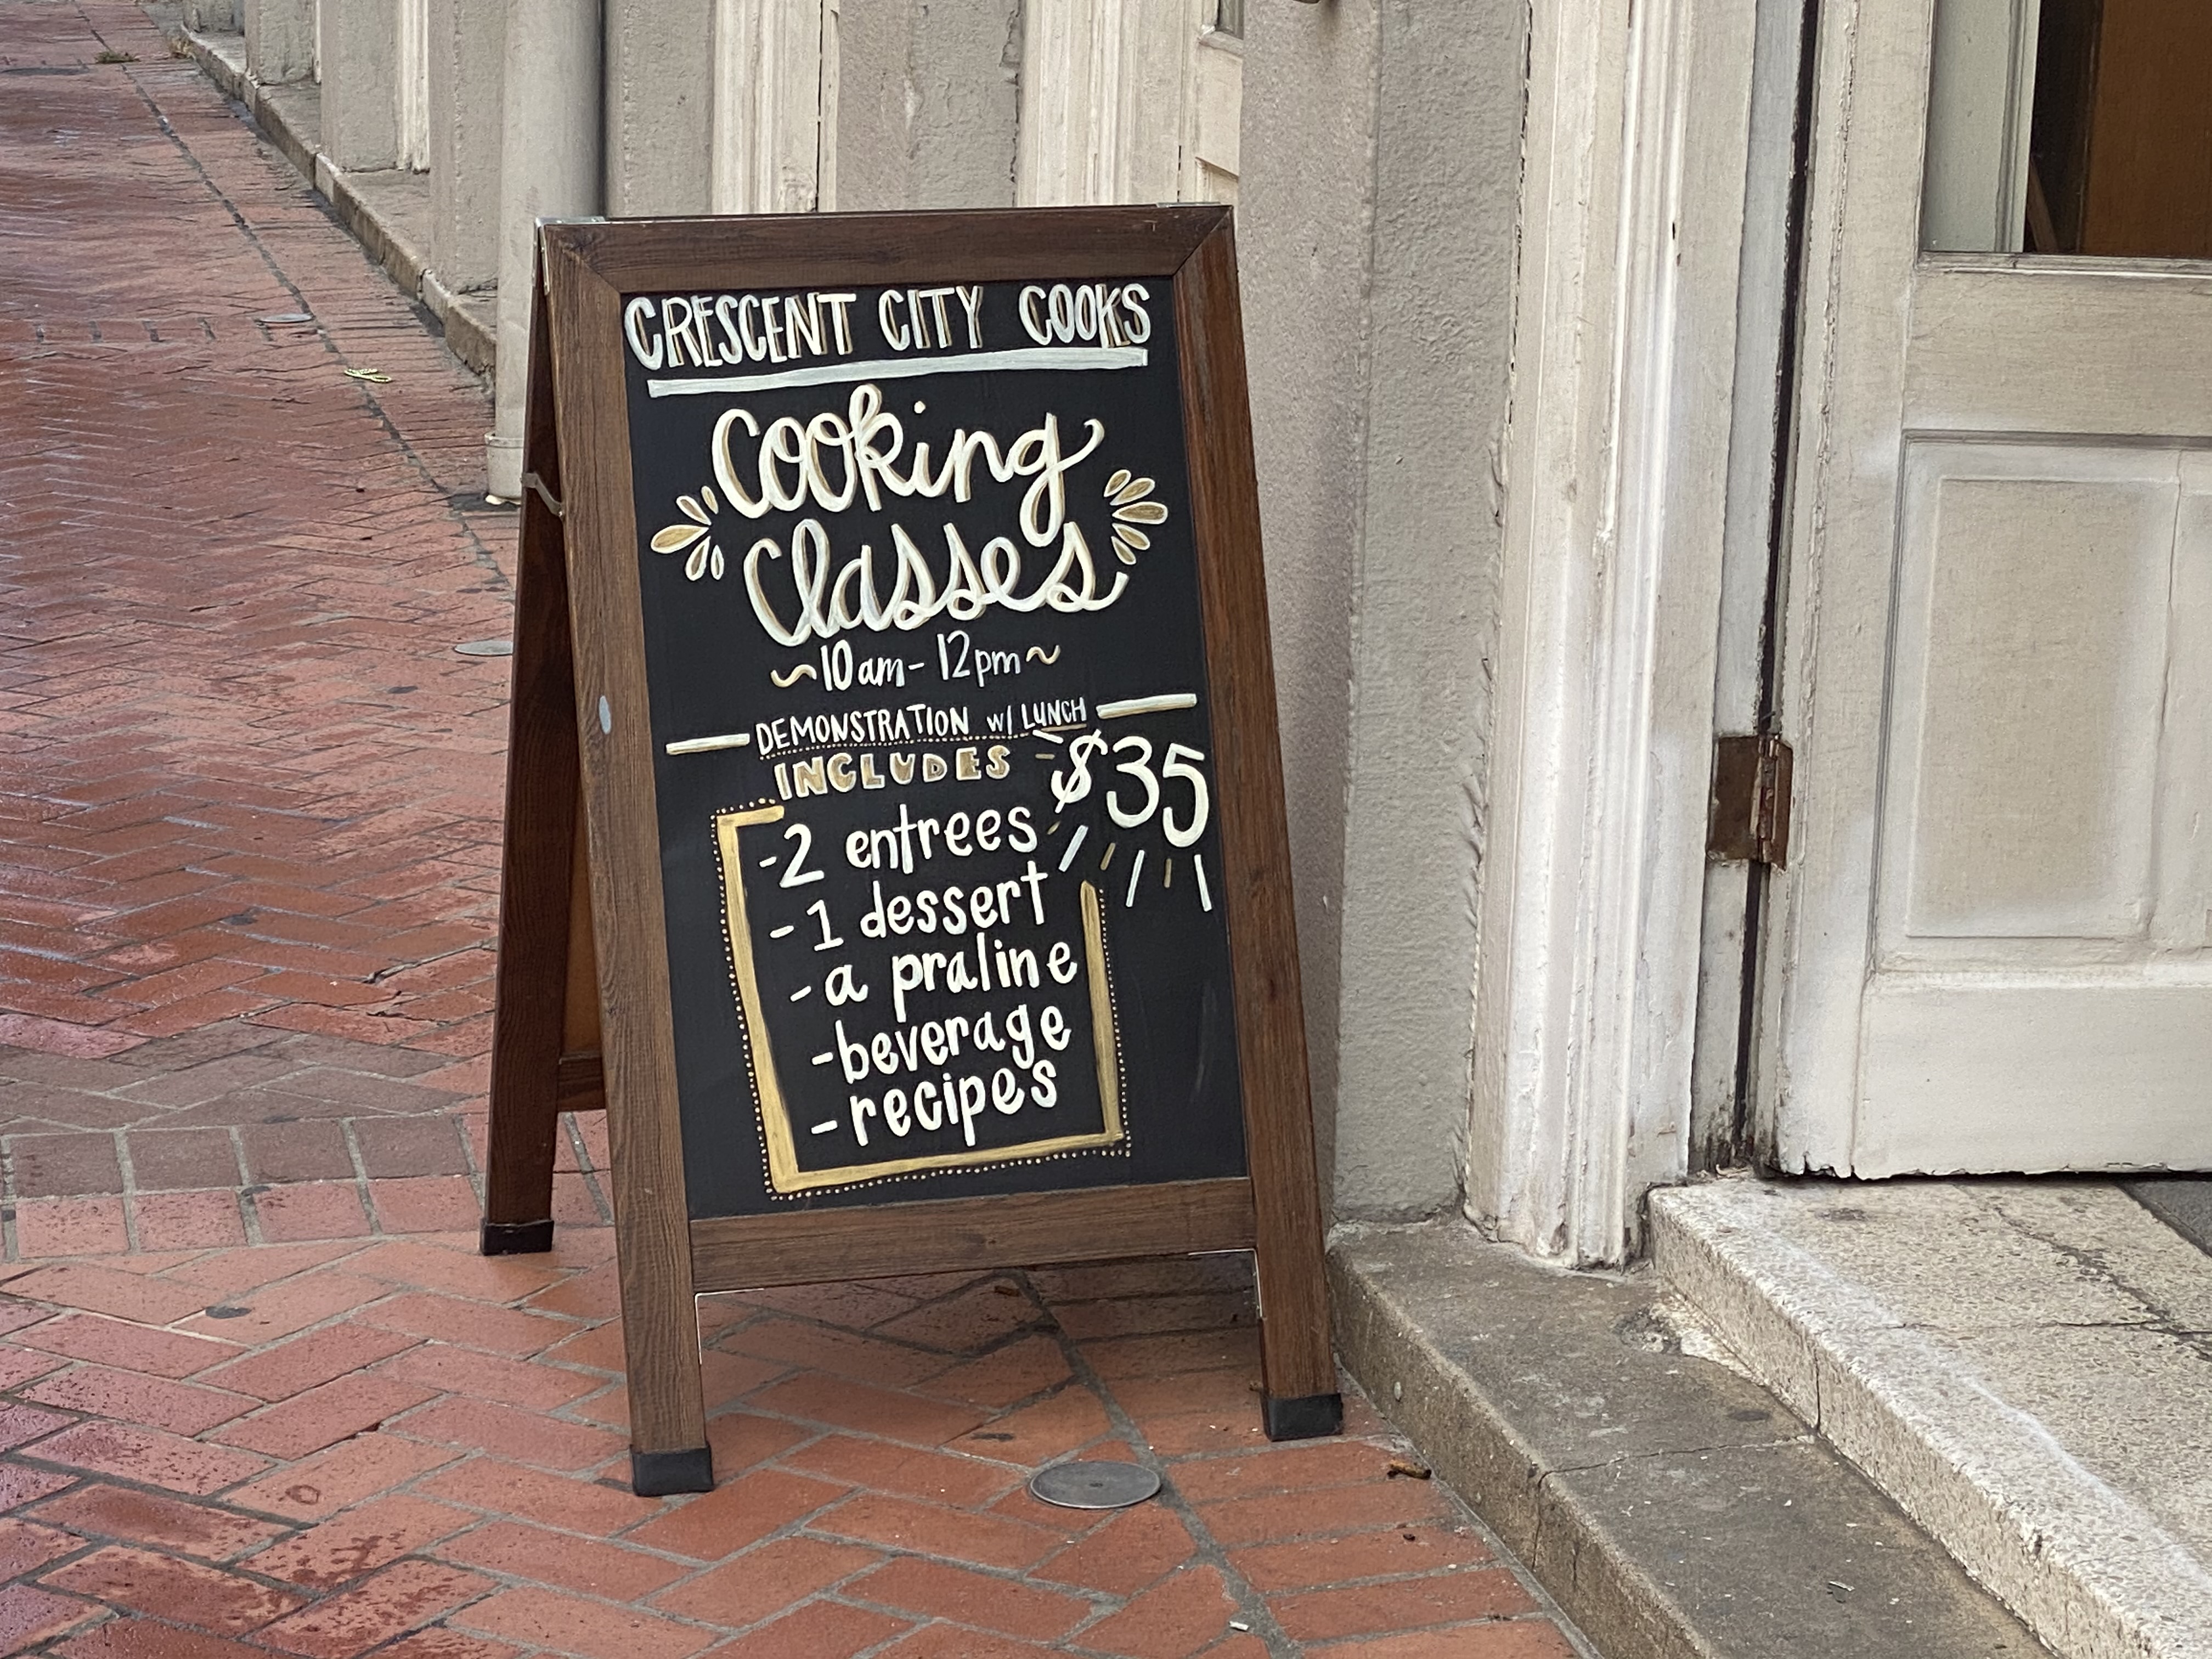 CRESCENT CITY COOKS
Cooking
Classes
~10am-12pm~
DEMONSTRATION w/ LUNCH
INCLUDES
$35
-2 entrees
-1 dessert
-a praline
-beverage
-recipes